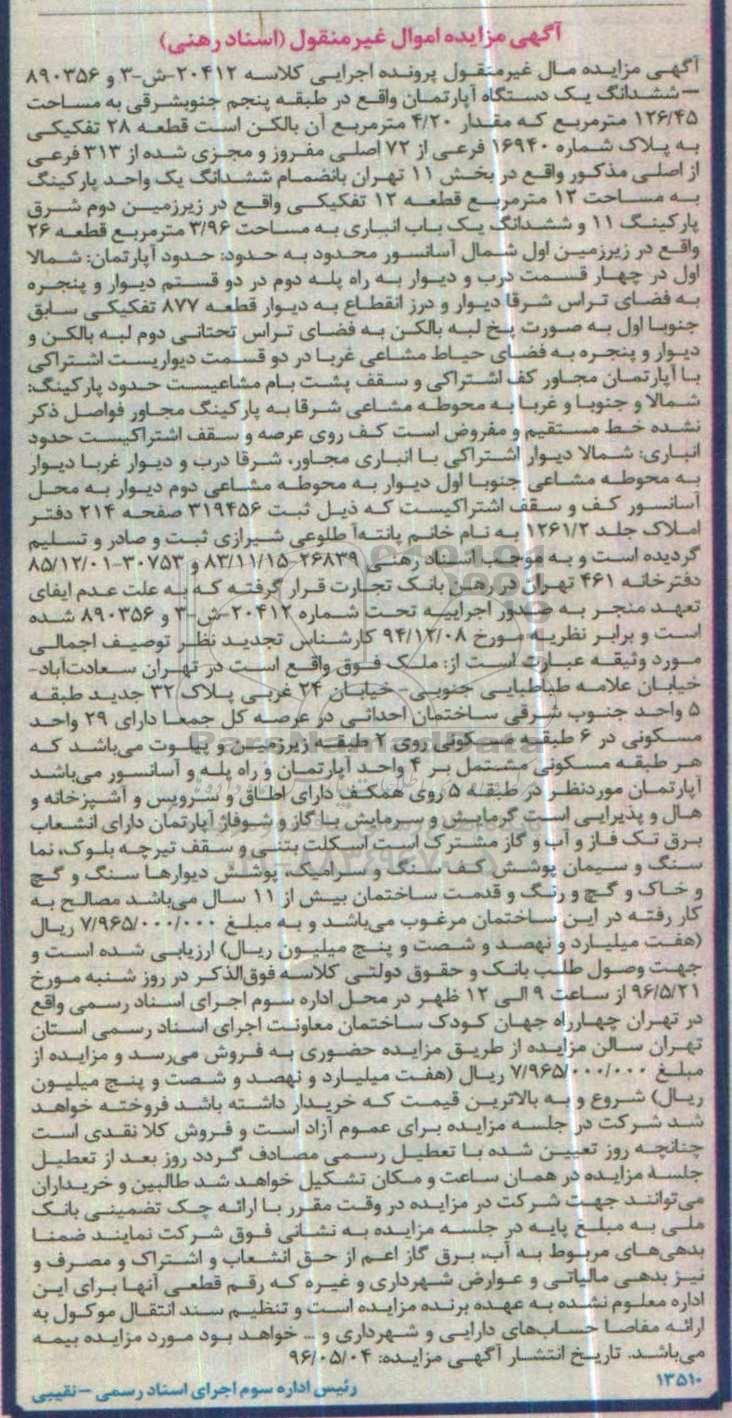 آگهی مزایده اموال غیرمنقول (اسناد رهنی)
آگهی مزایده مال غیرمنقول پرونده اجرایی کلاسه ۲۰۴۱۲-ش-۳ و ۸۹۰۳۵۶
–ششدانگ یک دستگاه آپارتمان واقع در طبقه پنجم جنوبشرقی به مساحت
۱۲۶/۴۵ مترمربع که مقدار ۴/۲۰ مترمربع آن بالکن است قطعه ۲۸ تفکیکی
به پلاک شماره ۱۶۹۴۰ فرعی از ۷۲ اصلی مفروز و مجزی شده از ۳۱۳ فرعی
از اصلی مذکور واقع در بخش ۱۱ تهران بانضمام ششدانگ یک واحد پارکینگ
به مساحت ۱۲ مترمربع قطعه ۱۲ تفکیکی واقع در زیرزمین دوم شرق
پارکینگ ۱۱ و ششدانگ یک باب انباری به مساحت ۳/۹۶ مترمربع قطعه ۲۶
واقع در زیرزمین اول شمال آسانسور محدود به حدود: حدود آپارتمان: شمالا
اول در چهار قسمت درب و دیوار به راه پله دوم در دو قستم دیوار و پنجره
به فضای تراس شرقا دیوار و درز انقطاع به دیوار قطعه ۸۷۷ تفکیکی سابق
جنوبا اول به صورت پخ لبه بالکن به فضای تراس تحتانی دوم لبه بالکن و
دیوار و پنجره به فضای حیاط مشاعی غربا در دو قسمت دیواریست اشتراکی
با آپارتمان مجاور کف اشتراکی و سقف پشت بام مشاعیست حدود پارکینگ:
شمالا و جنوبا و غربا به محوطه مشاعی شرقا به پارکینگ مجاور فواصل ذکر
نشده خط مستقیم و مفروض است کف روی عرصه و سقف اشتراکیست حدود
انباری: شمالا دیوار اشتراکی با انباری مجاور، شرقا درب و دیوار غربا دیوار
به محوطه مشاعی جنوبا اول دیوار به محوطه مشاعی دوم دیوار به محل
آسانسور کف و سقف اشتراکیست که ذیل ثبت ۳۱۹۴۵۶ صفحه ۲۱۴ دفتر
املاک جلد ۱۲۶۱/۲ به نام خانم پانته‌آ طلوعی شیرازی ثبت و صادر و تسلیم
گردیده است و به موجب اسناد رهنی ۲۶۸۳۹-۸۳/۱۱/۱۵ و ۳۰۷۵۳-۸۵/۱۲/۰۱
دفترخانه ۴۶۱ تهران در رهن بانک تجارت قرار گرفته که به علت عدم ایفای
تعهد منجر به صدور اجراییه تحت شماره ۲۰۴۱۲-ش-۳ و ۸۹۰۳۵۶ شده
است و برابر نظریه مورخ ۹۴/۱۲/۰۸ کارشناس تجدید نظر توصیف اجمالی
مورد وثیقه عبارت است از: ملک فوق واقع است در تهران سعادت‌آباد-
خیابان علامه طباطبایی جنوبی- خیابان ۲۴ غربی پلاک ۳۲ جدید طبقه
۵ واحد جنوب شرقی ساختمان احداثی در عرصه کل جمعا دارای ۲۹ واحد
مسکونی در ۶ طبقه مسکونی روی ۲ طبقه زیرزمین و پیلوت می‌باشد که
هر طبقه مسکونی مشتمل بر ۴ واحد آپارتمان و راه پله و آسانسور می‌باشد
آپارتمان موردنظر در طبقه ۵ روی همکف دارای اطاق و سرویس و آشپزخانه و
هال و پذیرایی است گرمایش و سرمایش با گاز و شوفاژ آپارتمان دارای انشعاب
برق تک فاز و آب و گاز مشترک است اسکلت بتنی و سقف تیرچه بلوک، نما
سنگ و سیمان پوشش کف سنگ و سرامیک، پوشش دیوارها سنگ و گچ
و خاک و گچ و رنگ و قدمت ساختمان بیش از ۱۱ سال می‌باشد مصالح به
کار رفته در این ساختمان مرغوب می‌باشد و به مبلغ ۷/۹۶۵/۰۰۰/۰۰۰ ریال
(هفت میلیارد و نهصد و شصت و پنج میلیون ریال) ارزیابی شده است و
جهت وصول طلب بانک و حقوق دولتی کلاسه فوق‌الذکر در روز شنبه مورخ
۹۶/۵/۲۱ از ساعت ۹ الی ۱۲ ظهر در محل اداره سوم اجرای اسناد رسمی واقع
در تهران چهارراه جهان کودک ساختمان معاونت اجرای اسناد رسمی استان
تهران سالن مزایده از طریق مزایده حضوری به فروش می‌رسد و مزایده از
مبلغ ۷/۹۶۵/۰۰۰/۰۰۰ ریال (هفت میلیارد و نهصد و شصت و پنج میلیون
ریال) شروع و به بالاترین قیمت که خریدار داشته باشد فروخته خواهد
شد شرکت در جلسه مزایده برای عموم آزاد است و فروش کلا نقدی است
چنانچه روز تعیین شده با تعطیل رسمی مصادف گردد روز بعد از تعطیل
جلسهٔ مزایده در همان ساعت و مکان تشکیل خواهد شد طالبین و خریداران
می‌توانند جهت شرکت در مزایده در وقت مقرر با ارائه چک تضمینی بانک
ملی به مبلغ پایه در جلسه مزایده به نشانی فوق شرکت نمایند ضمنا
بدهی‌های مربوط به آب، برق گاز اعم از حق انشعاب و اشتراک و مصرف و
نیز بدهی مالیاتی و عوارض شهرداری و غیره که رقم قطعی آنها برای این
اداره معلوم نشده به عهده برنده مزایده است و تنظیم سند انتقال موکول به
ارائه مفاصا حساب‌های دارایی و شهرداری و ... خواهد بود مورد مزایده بیمه
می‌باشد. تاریخ انتشار آگهی مزایده: ۹۶/۰۵/۰۴
۱۳۵۱۰
رئیس اداره سوم اجرای اسناد رسمی –نقیبی